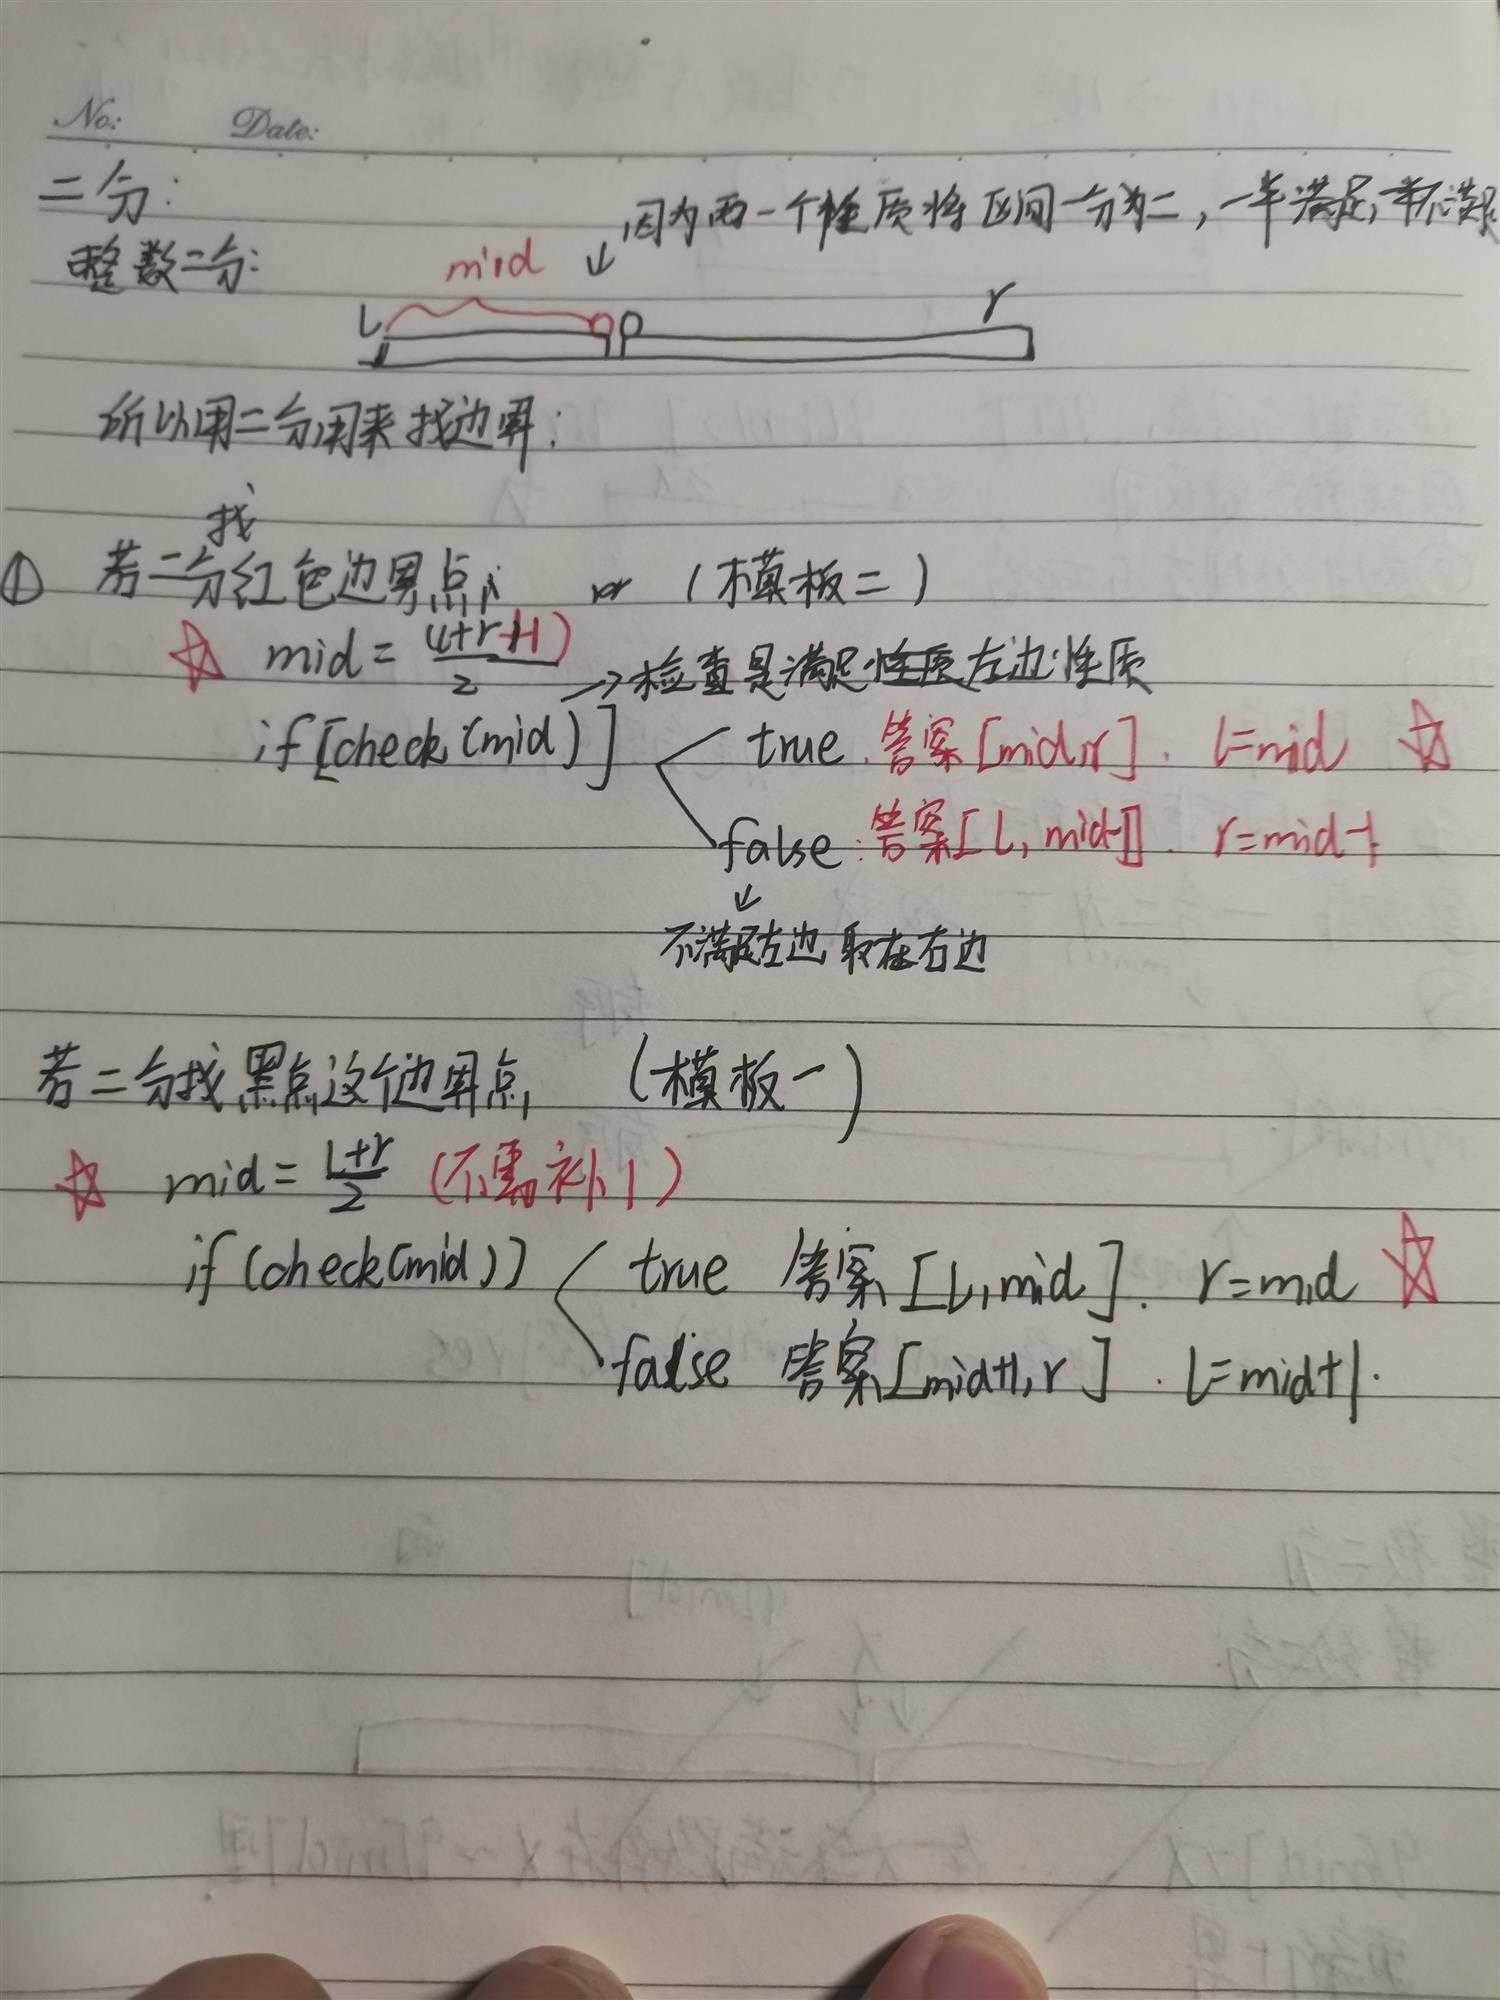 No:
Date:
二分:
因为两一个性质将区间一分为二，一半满足，一半不满足
整数二分:
mid
L
r
所以用二分用来找边界:
找
① 若二分红色边界点, (模板二)
mid = (l+r+1)/2
→检查是满足性质左边性质
if[check(mid)]
true. 答案[mid,r]. l=mid
false: 答案[L, mid-1]. r=mid-1
不满足左边, 取在右边
若二分找黑点这个边界点 (模板一)
mid = L+r/2 (不需补1)
if(check(mid))
true 答案[L,mid]. r=mid
false 答案[mid+1,r]. l=mid+1.